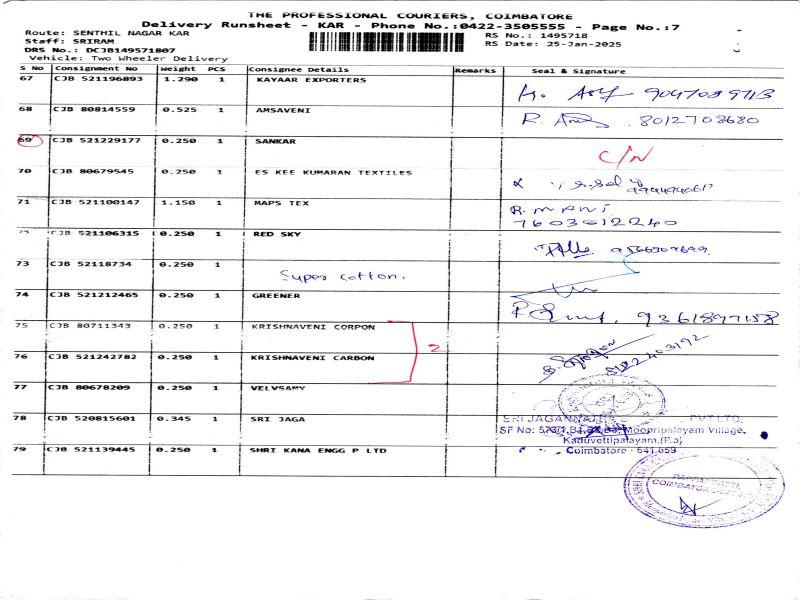 THE PROFESSIONAL COURIERS, COIMBATORE
Delivery Runsheet - KAR - Phone No.:0422-3505555 - Page No.:7
Route: SENTHIL NAGAR KAR RS No.: 1495718
Staff: SRIRAM RS Date: 25-Jan-2025
DRS No.: DCJB149571807
Vehicle: Two Wheeler Delivery
S No Consignment No Weight PCS Consignee Details Remarks Seal & Signature
67 CJB 521196893 1.290 1 KAYAAR EXPORTERS
68 CJB 80814559 0.525 1 AMSAVENI 8012708680
69 CJB 521229177 0.250 1 SANKAR C/N
70 CJB 80679545 0.250 1 ES KEE KUMARAN TEXTILES
71 CJB 521100147 1.150 1 MAPS TEX R. MANI
7603012240
CJB 521106315 0.250 1 RED SKY
73 CJB 52118734 0.250 1 Super cotton.
74 CJB 521212465 0.250 1 GREENER 9361897158
75 CJB 80711343 0.250 1 KRISHNAVENI CORPON
2
76 CJB 521242782 0.250 1 KRISHNAVENI CARBON
77 CJB 80678209 0.250 1 VELVSAMY
78 CJB 520815601 0.345 1 SRI JAGA SRI JAGANNATH PVT LTD.
SF No: Moopripalayam Village,
Kaduvettipalayam,(P.o)
Coimbatore - 641 659
79 CJB 521139445 0.250 1 SHRI KANA ENGG P LTD
COIMBATORE